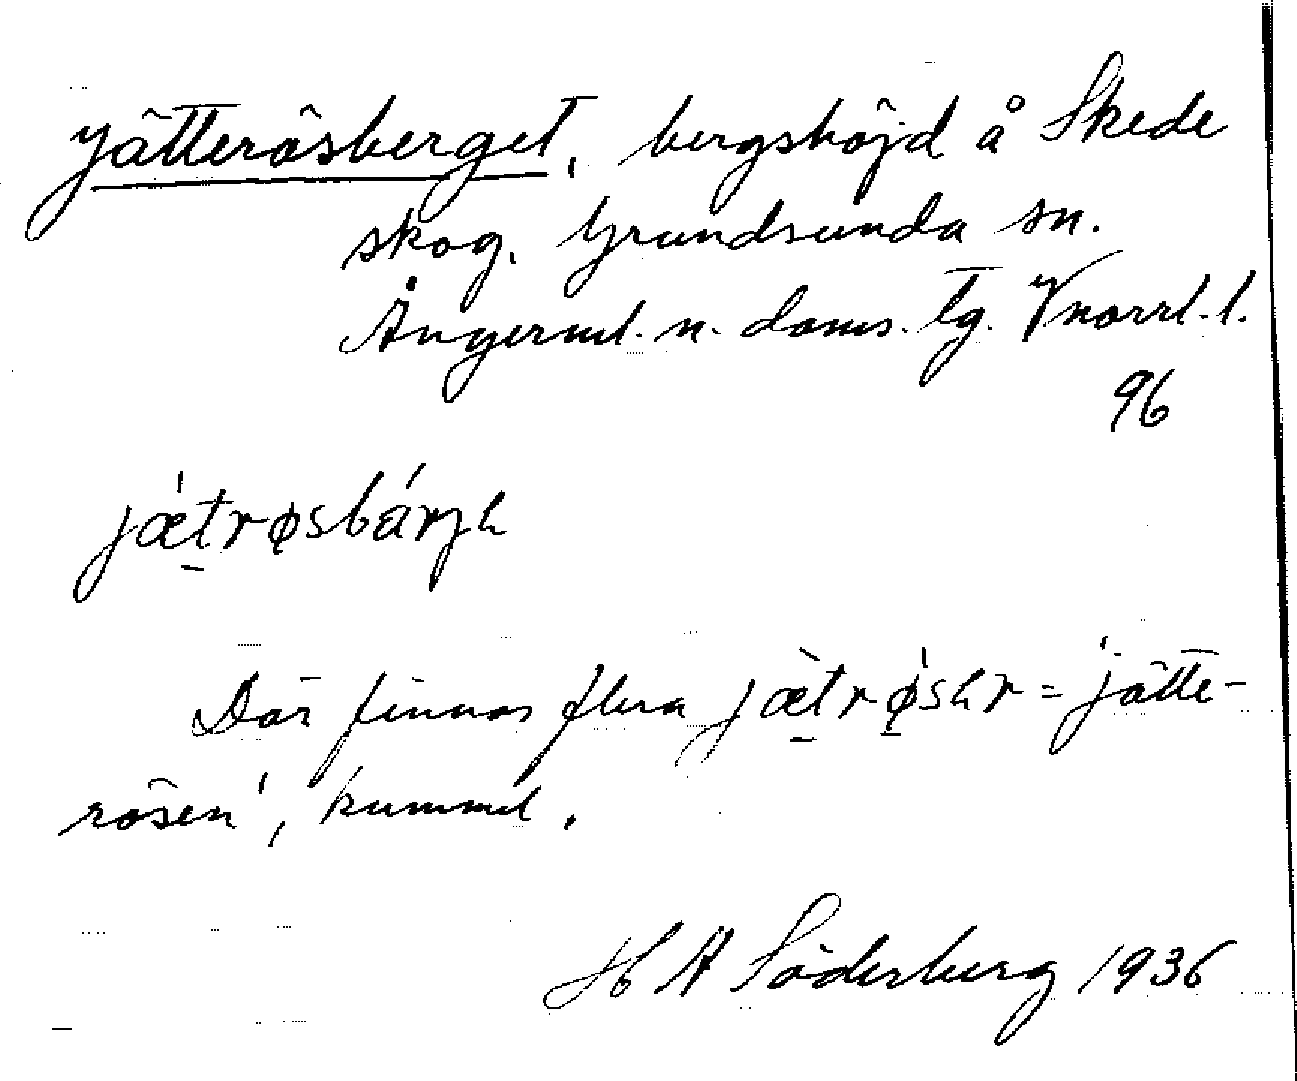 Jätterösberget, bergshöjd å Skede
skog. Grundsunda sn.
Ångerml. n. doms. tg. Vnorrl. l.
96
jætrøsbárjh
Där finnas flera jætrøshr = 'jätte-
rösen', kummel.
H A Söderberg 1936